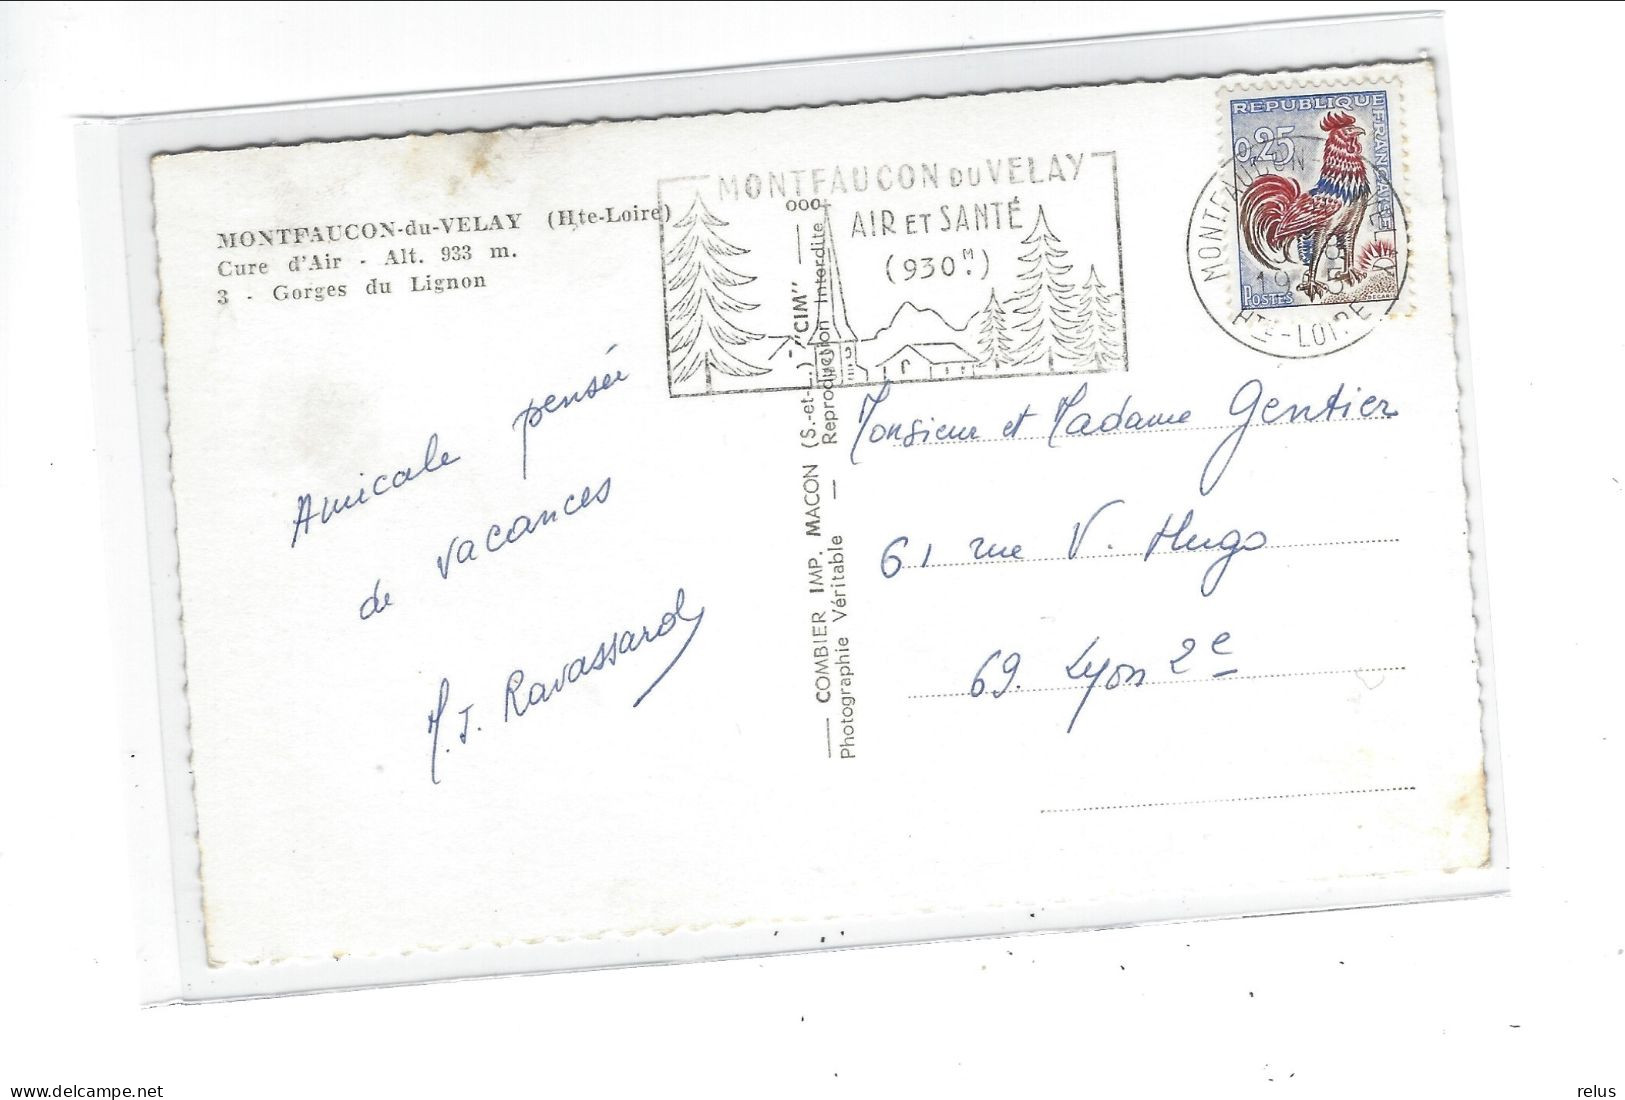 MONTFAUCON-du-VELAY (Hte-Loire)
Cure d'Air - Alt. 933 m.
3 - Gorges du Lignon
MONTFAUCON DU VELAY
AIR ET SANTÉ
(930M.)
REPUBLIQUE FRANÇAISE
0,25
POSTES
DECARIS
MONTFAUCON
HTE-LOIRE
Amicale pensée
de vacances
M.J. Ravassard
COMBIER IMP. MACON (S.-et-L.) - "CIM"
Photographie Véritable — Reproduction Interdite
Monsieur et Madame Gentier
61 rue V. Hugo
69. Lyon 2e
delcampe.net
relus